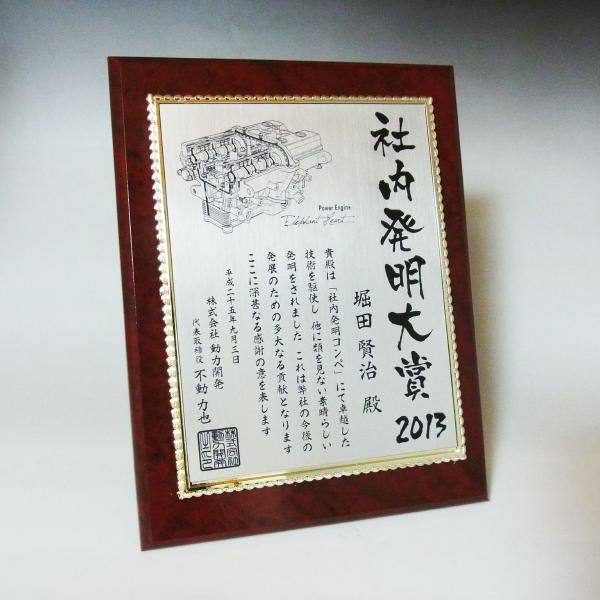 社内発明大賞2013
堀田賢治 殿
貴殿は「社内発明コンペ」にて卓越した
技術を駆使し 他に類を見ない素晴らしい
発明をされました これは弊社の今後の
発展のための多大なる貢献となります
ここに深甚なる感謝の意を表します
平成二十五年九月三日
株式会社 動力開発
代表取締役 不動力也
Power Engine
Elephant Heart